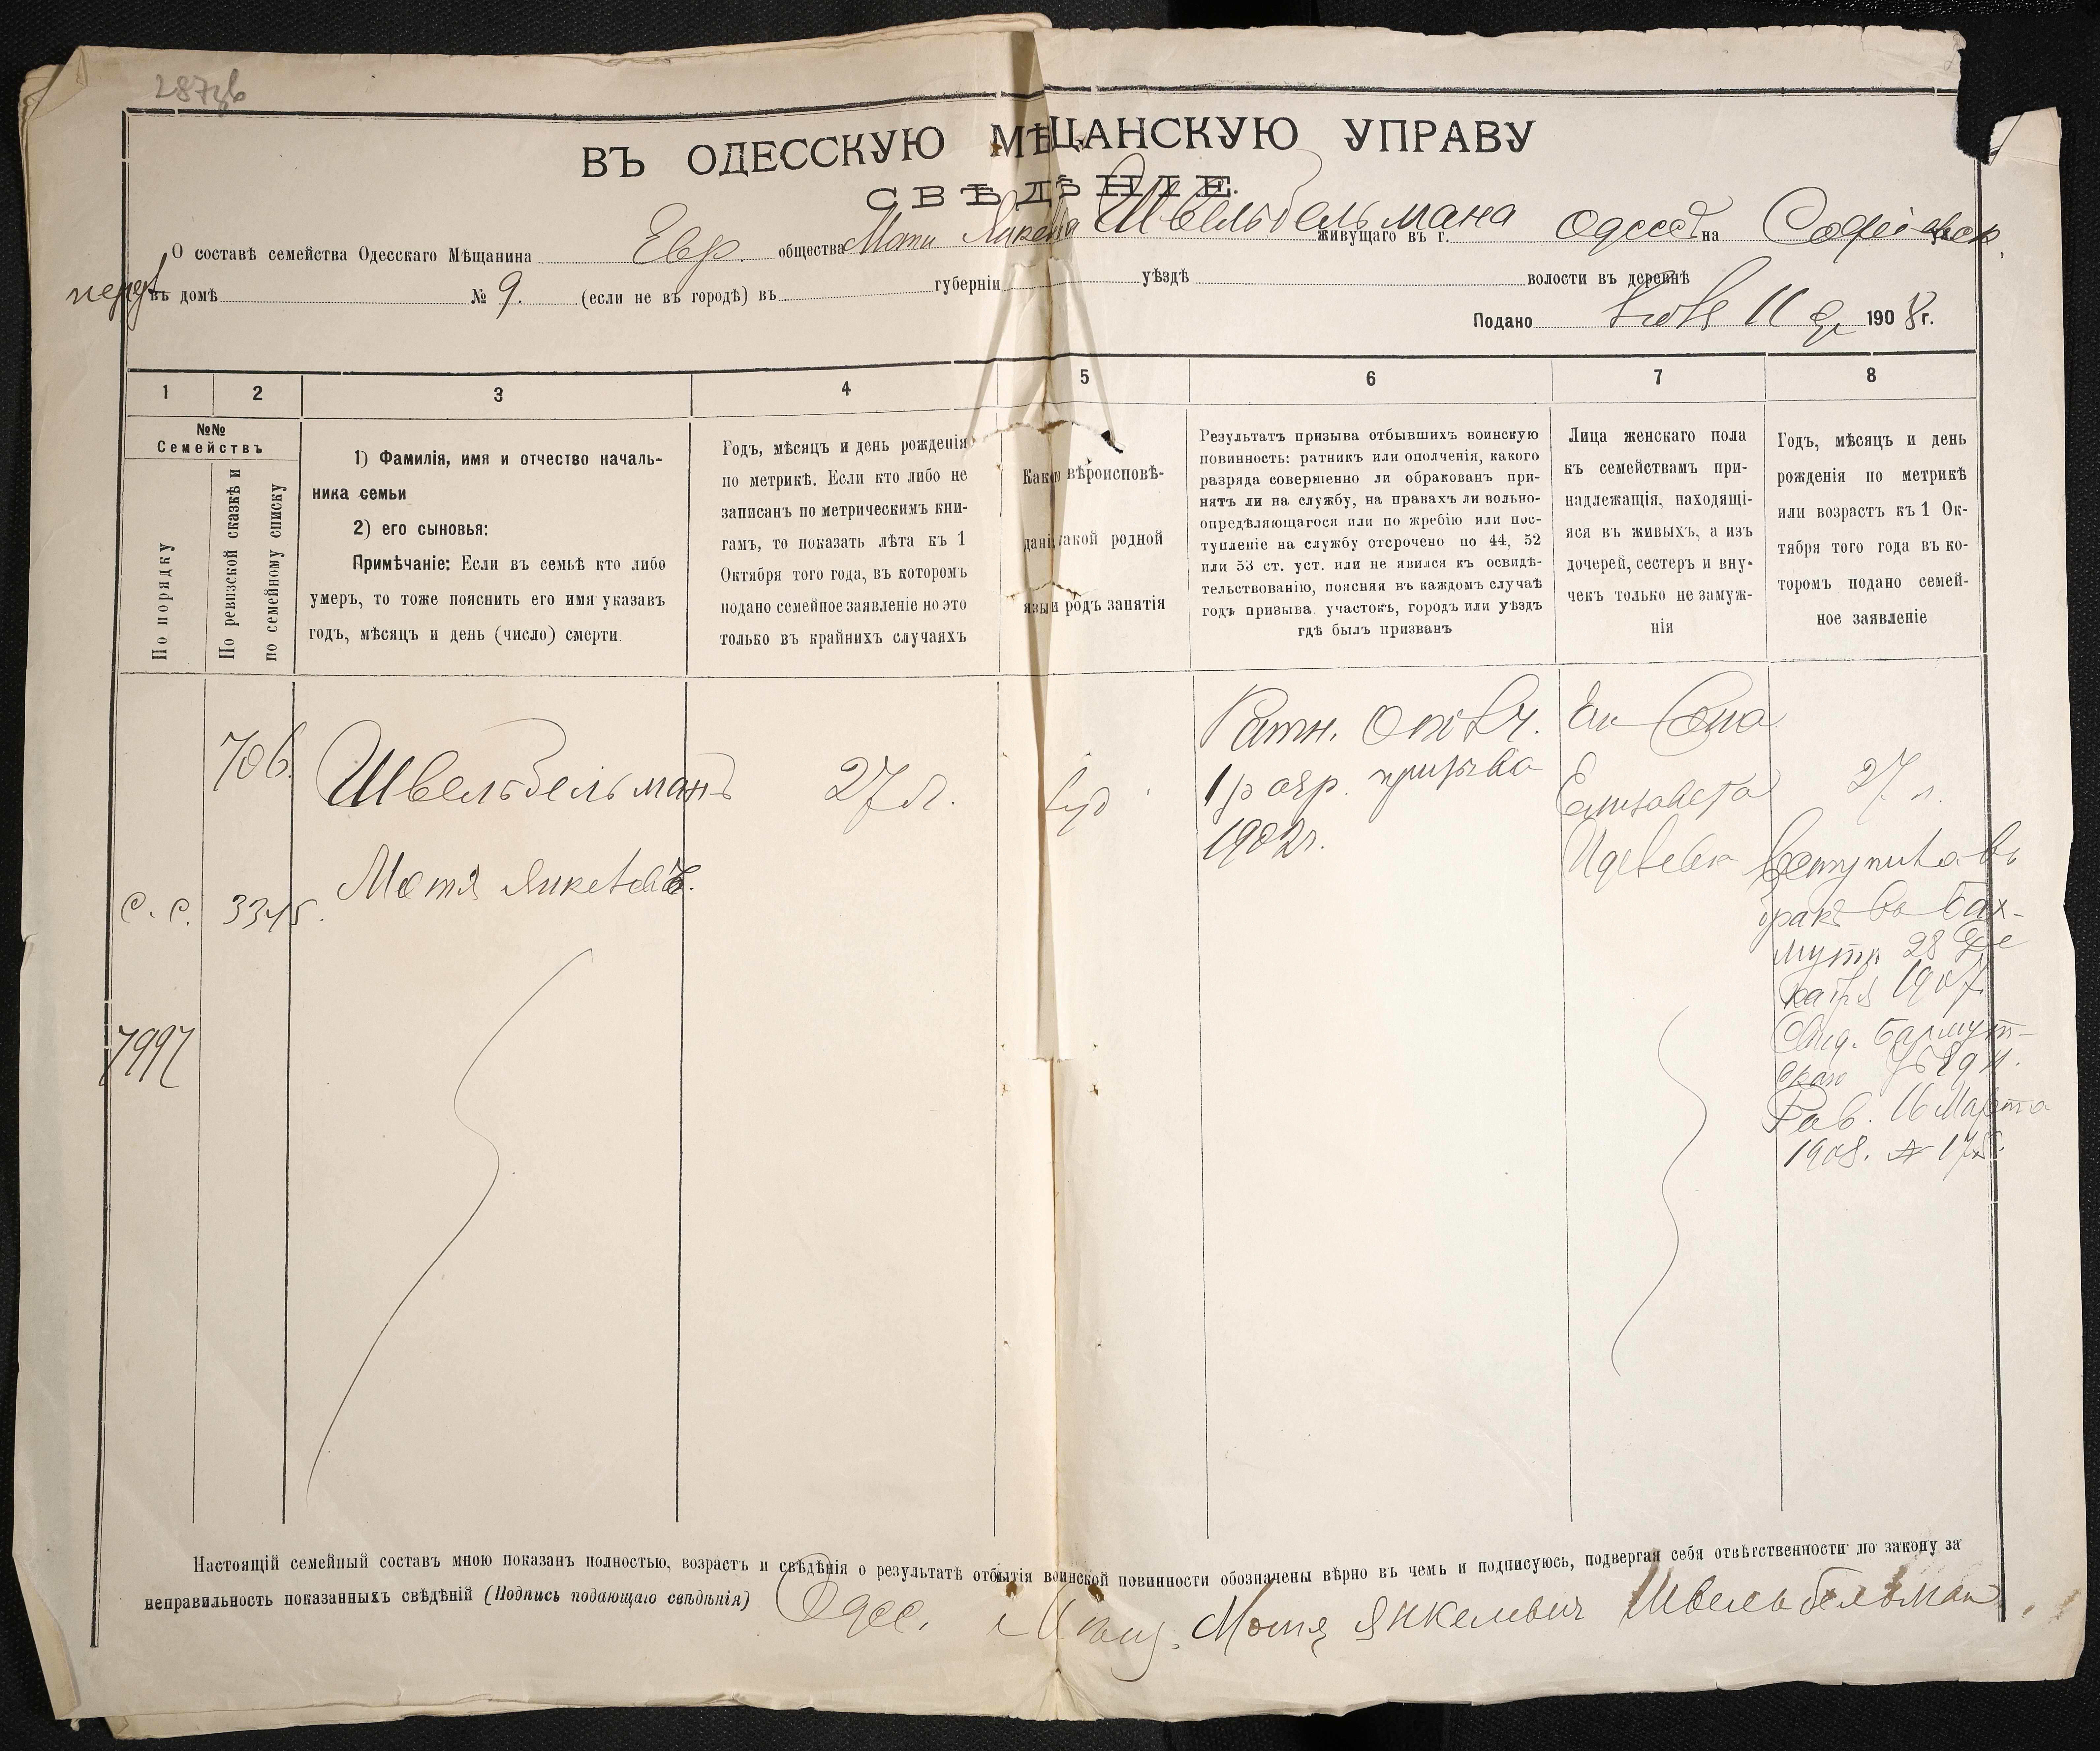 ВЪ ОДЕССКУЮ МѢЩАНСКУЮ УПРАВУ
СВѢДѢНІЕ.
О составѣ семейства Одесскаго Мѣщанина Евр. общества Моти Янкеля Швельбельмана живущаго въ г. Одессѣ на Софіевск.
переу въ домѣ № 9. (если не въ городѣ) въ губерніи уѣздѣ волости въ деревнѣ
Подано 11 1908 г.
1 2 3 4 5 6 7 8
№№
Семействъ
По порядку
По ревизской сказкѣ и
по семейному списку
1) Фамилія, имя и отчество началь-
ника семьи
2) его сыновья:
Примѣчаніе: Если въ семьѣ кто либо
умеръ, то тоже пояснить его имя указавъ
годъ, мѣсяцъ и день (число) смерти.
Годъ, мѣсяцъ и день рожденія
по метрикѣ. Если кто либо не
записанъ по метрическимъ кни-
гамъ, то показать лѣта къ 1
Октября того года, въ которомъ
подано семейное заявленіе но это
только въ крайнихъ случаяхъ
Какого вѣроисповѣ-
данія какой родной
языкъ и родъ занятія
Результатъ призыва отбывшихъ воинскую
повинность: ратникъ или ополченія, какого
разряда совершенно ли обракованъ при-
нятъ ли на службу, на правахъ ли вольно-
опредѣляющагося или по жребію или пос-
тупленіе на службу отсрочено по 44, 52
или 53 ст. уст. или не явился къ освидѣ-
тельствованію, поясняя въ каждомъ случаѣ
годъ призыва, участокъ, городъ или уѣздъ
гдѣ былъ призванъ
Лица женскаго пола
къ семействамъ при-
надлежащія, находящі-
яся въ живыхъ, а изъ
дочерей, сестеръ и вну-
чекъ только не замуж-
нія
Годъ, мѣсяцъ и день
рожденія по метрикѣ
или возрастъ къ 1 Ок-
тября того года въ ко-
торомъ подано семей-
ное заявленіе
706.
Швельбельманъ
Мотя Янкелевъ.
27 л.
Іуд
Ратн. Опол.
1 разр. призыва
1902 г.
Елизавета
27 л.
Вступила въ
бракъ въ Бах-
мутѣ 28 Де
кабря 1907
Свид. Бахмут-
скаго
Рав. 16 Марта
1908. №
С. С. 3345.
7997
Настоящій семейный составъ мною показанъ полностью, возрастъ и свѣдѣнія о результатѣ отбытія воинской повинности обозначены вѣрно въ чемъ и подписуюсь, подвергая себя отвѣтственности по закону за
неправильность показанныхъ свѣдѣній (Подпись подающаго свѣдѣнія) Одес. Мѣщ. Мотя Янкелевич Швельбельман